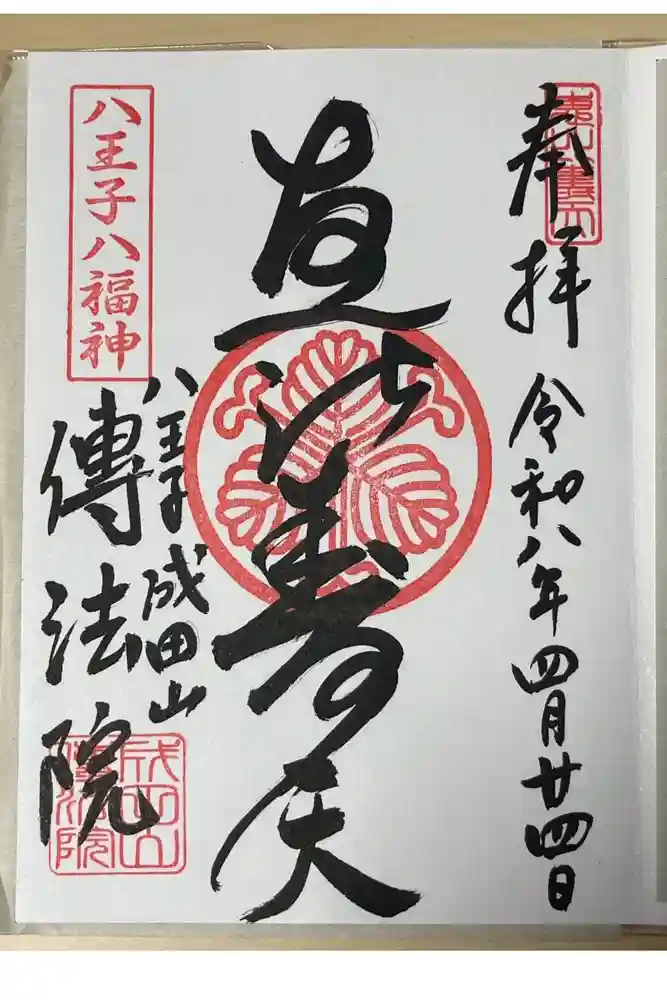 奉拝 令和八年四月廿四日
恵比寿天
八王子八福神
八王子成田山
傳法院
成田山
傳法院